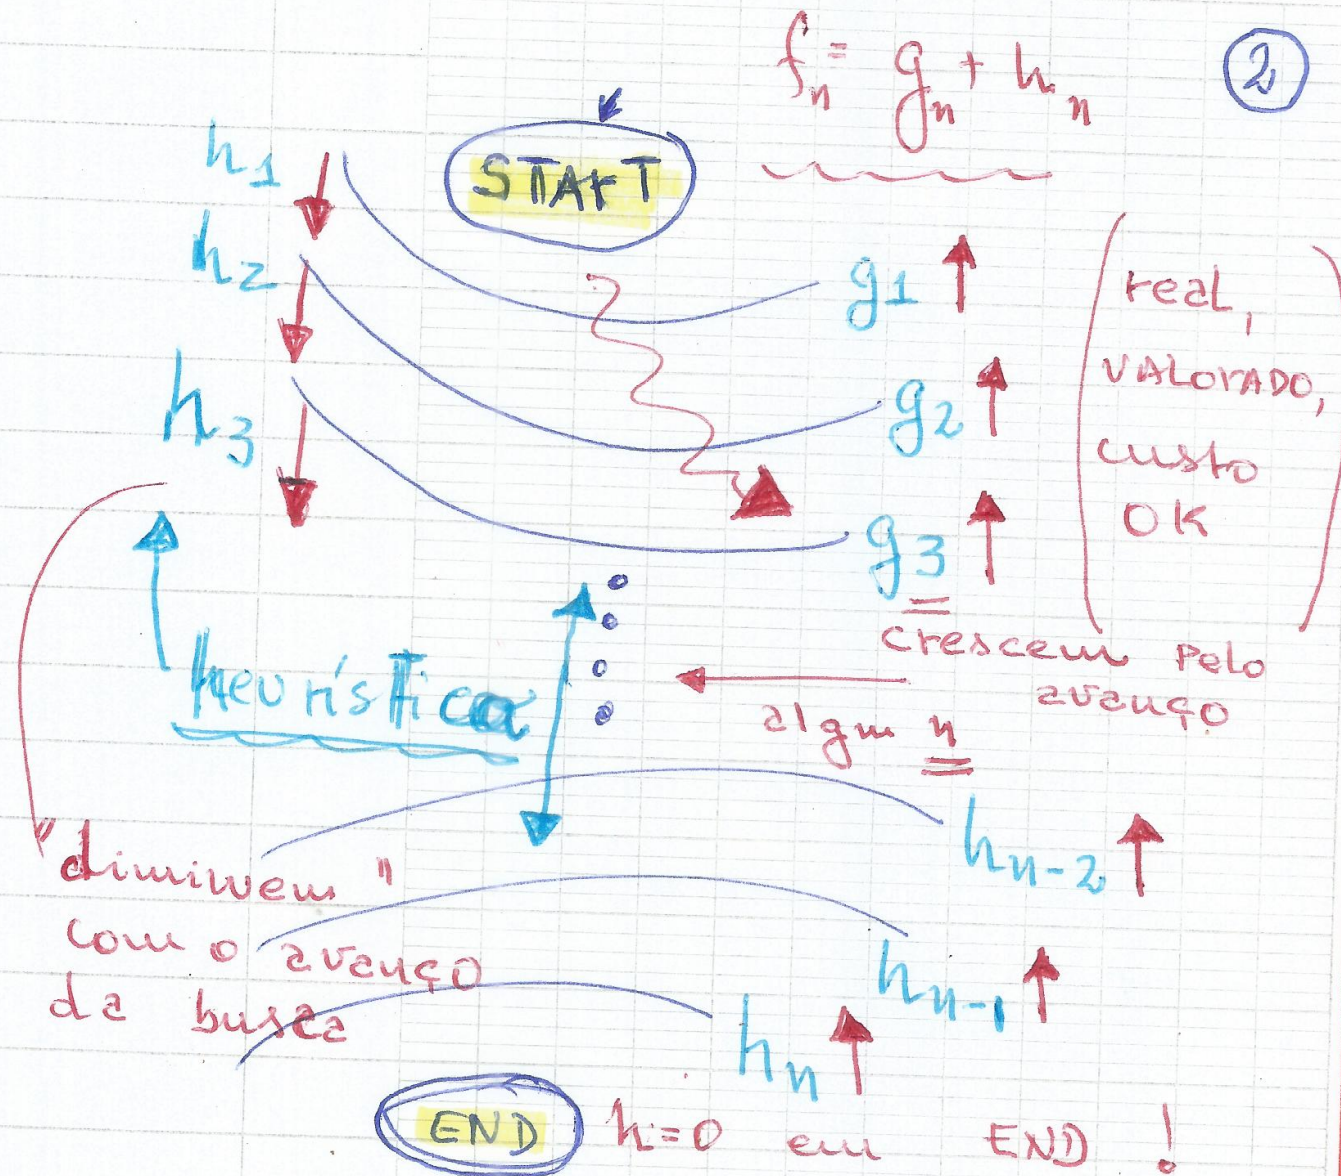 fn = gn + hn
2
START
h1
h2
h3
g1
g2
g3
real,
VALORADO,
custo
OK
crescem pelo
avanço
heurística
algm n
"diminuem"
com o avanço
da busca
hn-2
hn-1
hn
END h=0 em END !